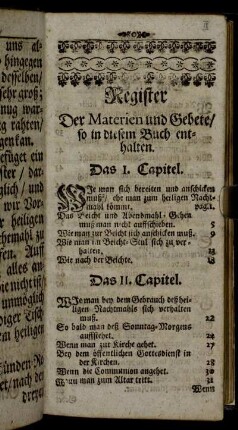 uns al-
hingegen
desselben/
sehr groß;
nug war-
rahten/
gen kan.
efüget ein
ster/ dar-
glich/ und
wir Vor-
r heiligen
hrmahl zu
fen. Auff
alles an
ie nicht ist/
unmöglich
diger Tisch
en heiligen
Register
Der Materien und Gebete/
so in diesem Buch ent-
halten.
Das I. Capitel.
WIe man sich bereiten und anschicken
muß/ ehe man zum heiligen Nacht-
mahl kömmt. pag. 1.
Das Beicht und Abendmahl-Gehen
muß man nicht auffschieben. 5
Wie man zur Beicht sich anschicken muß. 9
Wie man im Beicht-Stul sich zu ver-
halten.
Wie nach der Beichte.
Das II. Capitel.
WIe man bey dem Gebrauch deß hei-
ligen Nachtmahls sich verhalten
muß. 22
So bald man deß Sonntag-Morgens
auffstehet. 22
Wenn man zur Kirche gehet. 27
Bey dem öffentlichen Gottesdienst in
der Kirchen. 28
Wenn die Communion angehet. 30
Wenn man zum Altar tritt. 31
Wenn